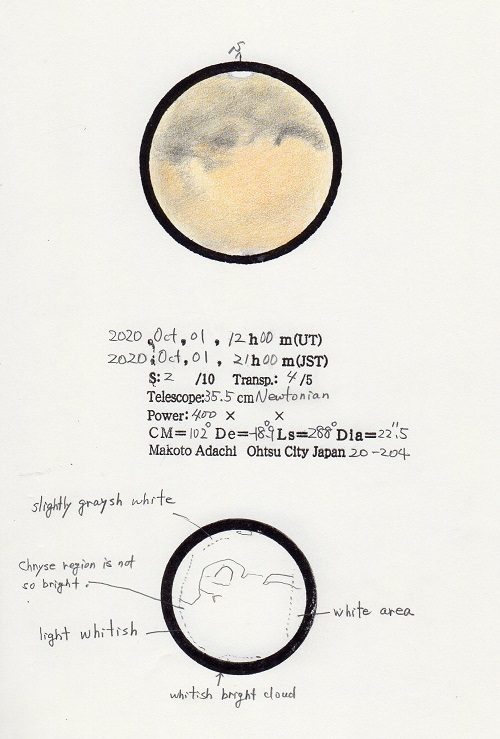 S
2020 Oct, 01, 12 h 00 m(UT)
2020 Oct, 01, 21 h 00 m(JST)
S: 2 /10 Transp.: 4 /5
Telescope: 35.5 cm Newtonian
Power: 400 × ×
CM=102° De=-18.9° Ls=288° Dia=22".5
Makoto Adachi Ohtsu City Japan 20-204
slightly graysh white
Chryse region is not
so bright.
white area
light whitish
whitish bright cloud